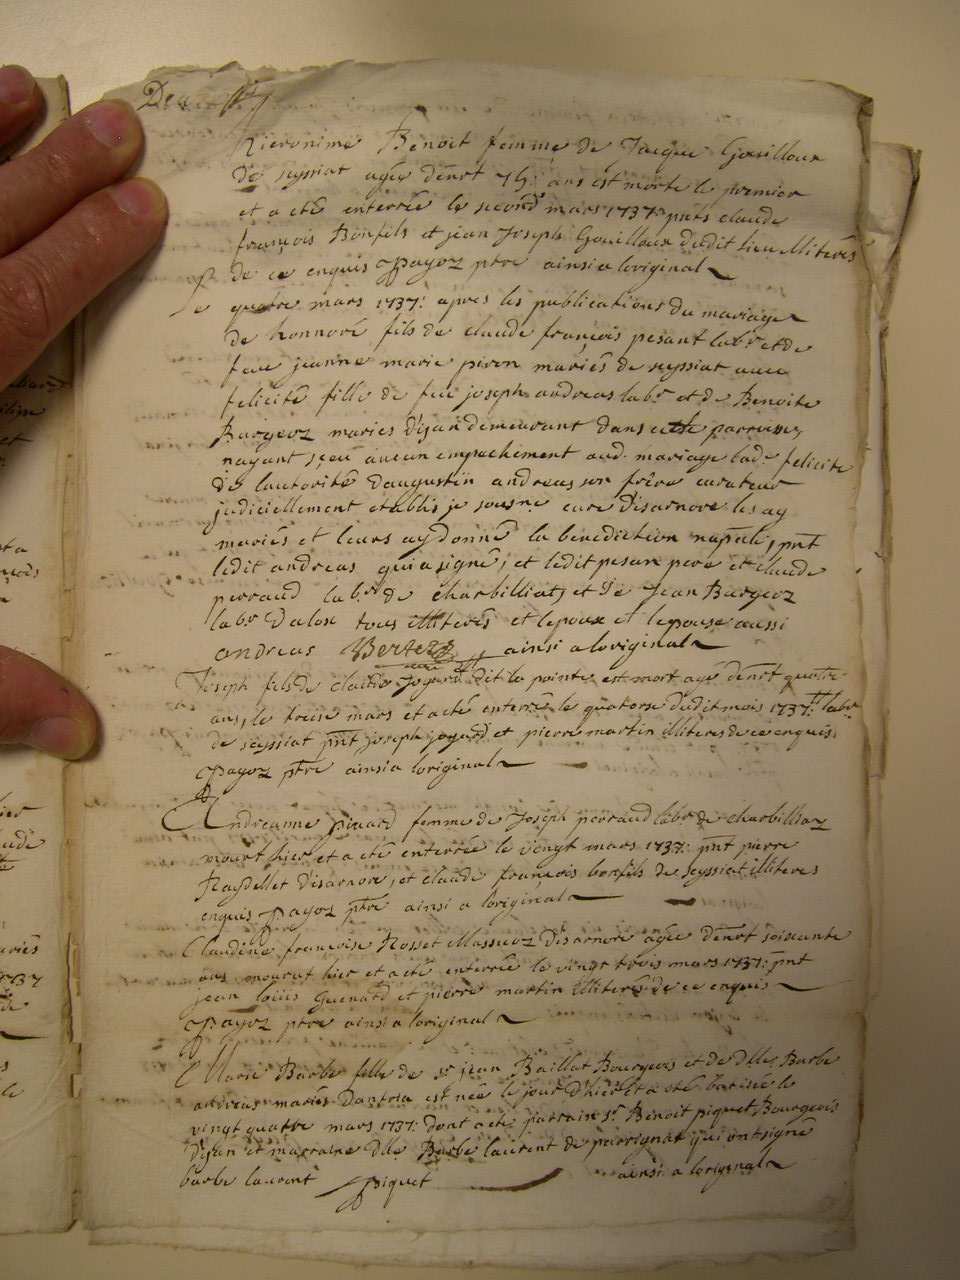 hieronime Benoit femme de Jacque Gouilloux
de seyssiat agée denvt 75: ans est morte le premier
et a eté enterrée le second mars 1737: pnts claude
françois Bonfils et jean Joseph Gouilloux dudit lieu illiterés
de ce enquis Payoz ptre ainsi a loriginal
Le quatre mars 1737: apres les publications du mariage
de honnoré fils de claude françois pesant labr et de
feue jeanne marie piron mariés de seyssiat avec
felicité fille de feu joseph andreas labr et de Benoite
Burgeoz mariés d'ijean demeurant dans cette parroisse,
nayant sçeu aucun empechement aud. mariage lad. felicité
de lautorité d'augustin andreas son frere curateur
judiciellement etablis je sousne curé disarnore les ay
mariés et leurs ay donné la benediction nupale, pnt
ledit andreas qui a signé, et ledit pesan pere et claude
perraud labr de charbilliat, et De Jean Burgeoz
labr Dalox tous illiterés et lepoux et lepouse aussi
andreas curé ainsi a loriginal
Joseph fils de claude Joyard dit la pointe est mort agé denvt quatre
ans, le treise mars et a eté enterré le quatorse dudit mois 1737: labr
de seyssiat pnt joseph joyard et pierre martin illiteres de ce enquis
Payoz ptre ainsi a loriginal
Andreanne pinard femme de Joseph perraud labr de charbilliaz
mourt hier et a eté enterrée le vingt mars 1737: pnt pierre
Raydellet disarnore, et claude françois bonfils de seyssiat illiteres
enquis Payoz ptre ainsi a loriginal
Claudine françoise Rosset Massuoz Disarnore agée denvt soixante
ans mourut hier et a eté enterrée le vingt trois mars 1737: pnt
jean loüis Guenard et pierre martin illiteres de ce enquis
Payoz ptre ainsi a loriginal
Marie Barbe fille de sr jean Baillat Bourgeois et de dlle Barbe
andreas mariés Dantria est née le jour D'hier et a eté batisée le
vingt quatre mars 1737: dont a eté parrain sr Benoit piquet Bourgeois
Dijan et marraine dlle Barbe laurent de parrignat qui ont signé
barbe laurent Piquet ainsi a loriginal